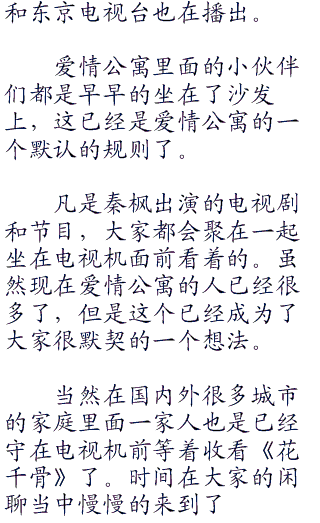 和东京电视台也在播出。
爱情公寓里面的小伙伴
们都是早早的坐在了沙发
上，这已经是爱情公寓的一
个默认的规则了。
凡是秦枫出演的电视剧
和节目，大家都会聚在一起
坐在电视机面前看着的。虽
然现在爱情公寓的人已经很
多了，但是这个已经成为了
大家很默契的一个想法。
当然在国内外很多城市
的家庭里面一家人也是已经
守在电视机前等着收看《花
千骨》了。时间在大家的闲
聊当中慢慢的来到了